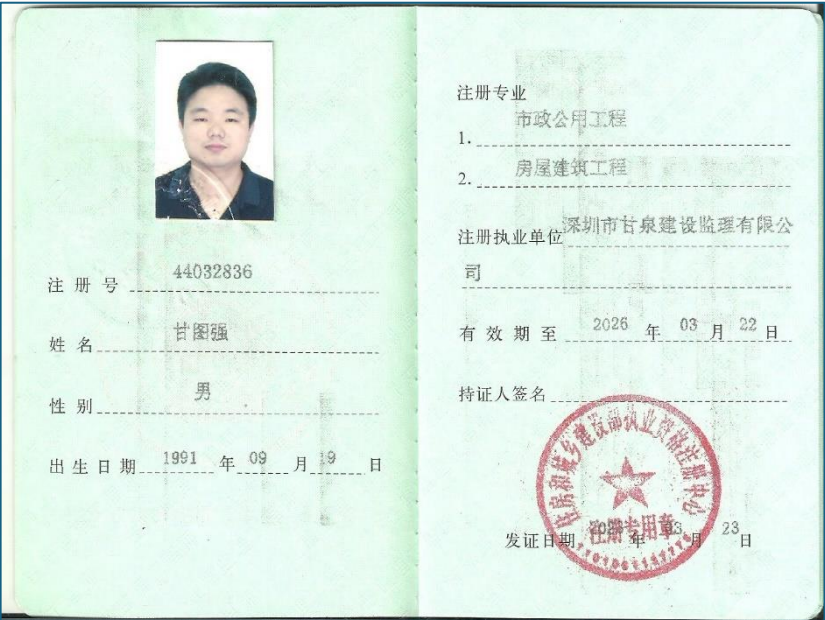 注册号 44032836
姓名 甘图强
性别 男
出生日期 1991 年 09 月 19 日
注册专业
1. 市政公用工程
2. 房屋建筑工程
注册执业单位 深圳市甘泉建设监理有限公
司
有效期至 2026 年 03 月 22 日
持证人签名
住房和城乡建设部执业资格注册中心
注册专用章
发证日期 年 03 月 23 日